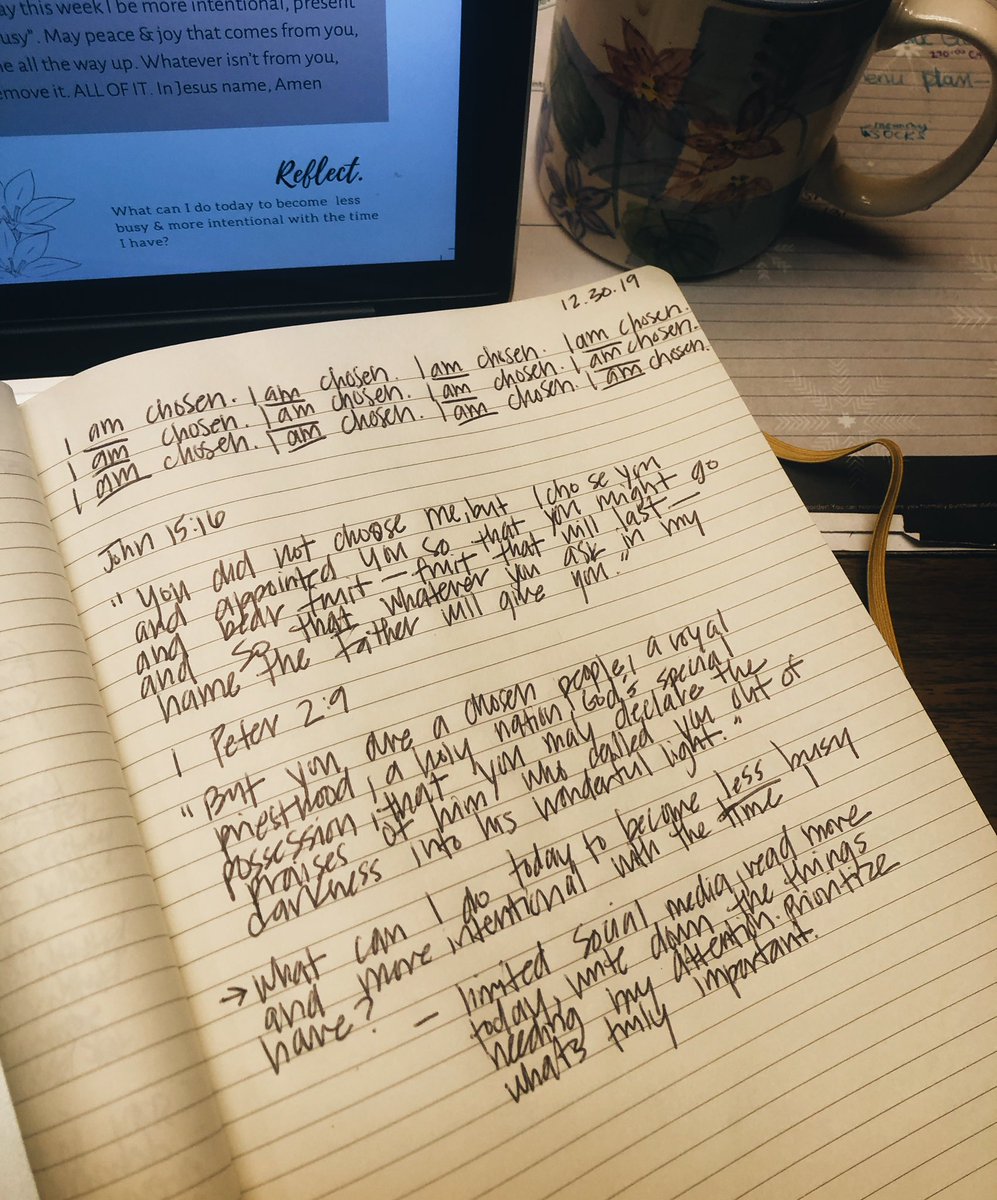 ay this week I be more intentional, present
usy". May peace & joy that comes from you,
e all the way up. Whatever isn't from you,
emove it. ALL OF IT. In Jesus name, Amen
Reflect.
What can I do today to become less
busy & more intentional with the time
I have?
menu plan
SOCKS
12.30.19
I am chosen. I am chosen. I am chosen. I am chosen.
I am chosen. I am chosen. I am chosen. I am chosen.
I am chosen. I am chosen. I am chosen. I am chosen.
John 15:16
"You did not choose me, but I chose you
and appointed you so that you might go
and bear fruit — fruit that will last —
and so that whatever you ask in my
name the Father will give you."
1 Peter 2:9
"But you are a chosen people, a royal
priesthood, a holy nation, God's special
possession, that you may declare the
praises of him who called you out of
darkness into his wonderful light."
→ What can I do today to become less busy
and more intentional with the time I
have? – limited social media, read more
today, write down the things
needing my attention. Prioritize
what's truly important.